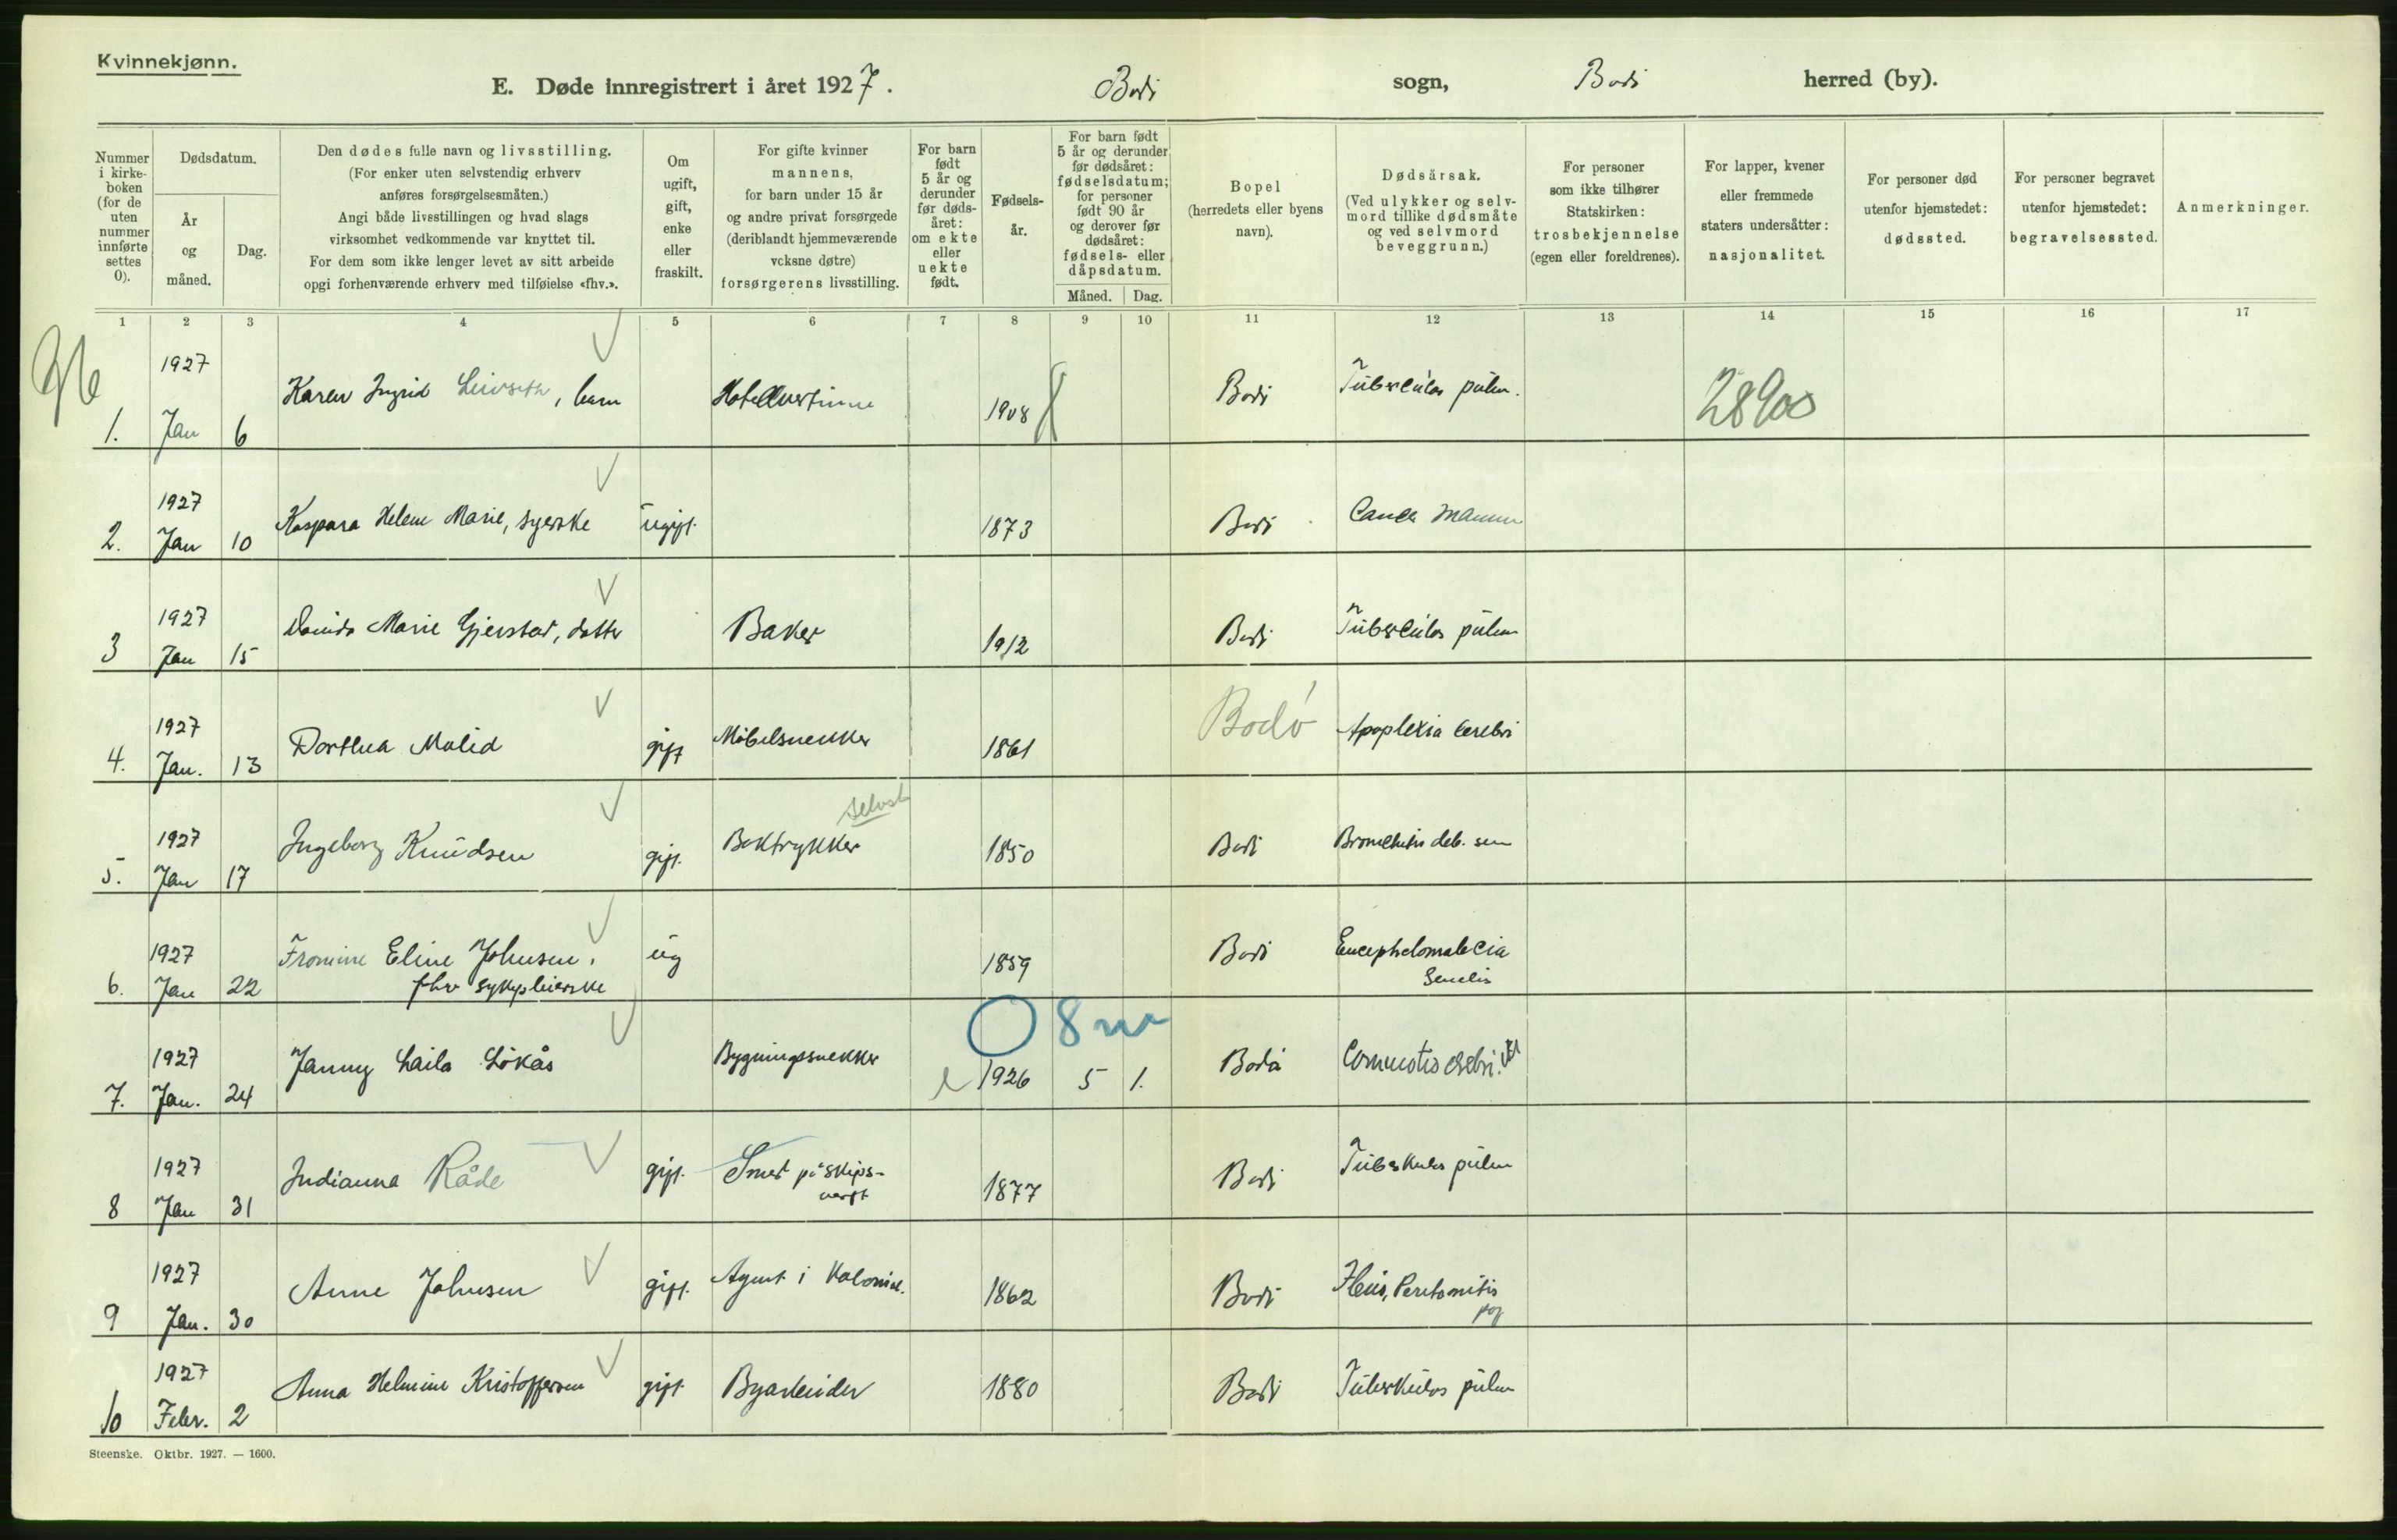 Kvinnekjønn.
E. Døde innregistrert i året 1927. Bodø sogn, Bodø herred (by).
Nummer i kirke- boken (for de uten nummer innførte settes 0).
Dødsdatum.
År og måned.
Dag.
Den dødes fulle navn og livsstilling.
(For enker uten selvstendig erhverv
anføres forsørgelsesmåten.)
Angi både livsstillingen og hvad slags
virksomhet vedkommende var knyttet til.
For dem som ikke lenger levet av sitt arbeide
opgi forhenværende erhverv med tilføielse «fhv.».
Om ugift, gift, enke eller fraskilt.
For gifte kvinner
mannens,
for barn under 15 år
og andre privat forsørgede
(deriblandt hjemmeværende
voksne døtre)
forsørgerens livsstilling.
For barn født 5 år og derunder før døds- året: om ekte eller uekte født.
Fødsels- år.
For barn født
5 år og derunder
før dødsåret:
fødselsdatum;
for personer
født 90 år
og derover før
dødsåret:
fødsels- eller
dåpsdatum.
Måned. Dag.
Bopel
(herredets eller byens
navn).
Dødsårsak.
(Ved ulykker og selv-
mord tillike dødsmåte
og ved selvmord
beveggrunn.)
For personer
som ikke tilhører
Statskirken:
trosbekjennelse
(egen eller foreldrenes).
For lapper, kvener
eller fremmede
staters undersåtter:
nasjonalitet.
For personer død
utenfor hjemstedet:
dødssted.
For personer begravet
utenfor hjemstedet:
begravelsessted.
Anmerkninger.
1 2 3 4 5 6 7 8 9 10 11 12 13 14 15 16 17
1. 1927 Jan 6 Karen Ingrid Leivseth, barn Hotellvertinne 1908 Bodø Tuberculos pulm. 28900
2. 1927 Jan 10 Kaspara Helene Marie, syerske ugift. 1873 Bodø Cancer mamm
3 1927 Jan 15 Davida Marie Gjerstad, datter Baker 1912 Bodø Tuberculos pulm
4. 1927 Jan. 13 Dorthea Molid gift Møbelsnekker 1861 Bodø Apoplexia cerebri
selvst
5. 1927 Jan 17 Ingeborg Knudsen gift. Boktrykker 1850 Bodø Bronchitis deb. sen
6. 1927 Jan 22 Eline Johnsen, ug 1859 Bodø Encephelomalecia
fhv sykepleierske Senelis
O 8 m
7. 1927 Jan. 24 Janny Laila Løkås Bygningssnekker e 1926 5 1. Bodø Commotio cerebri.
8 1927 Jan 31 Indianna Råde gift. Smed på skips-
verft 1877 Bodø Tuberkulos pulm
9 1927 Jan. 30 Anne Johnsen gift. Agent i Kolonial. 1862 Bodø Ileus, Peretonitis
10 1927 Febr. 2 Anna Helmine Kristoffersen gift. Byarbeider 1880 Bodø Tuberkulos pulm
Steenske. Oktbr. 1927. — 1600.